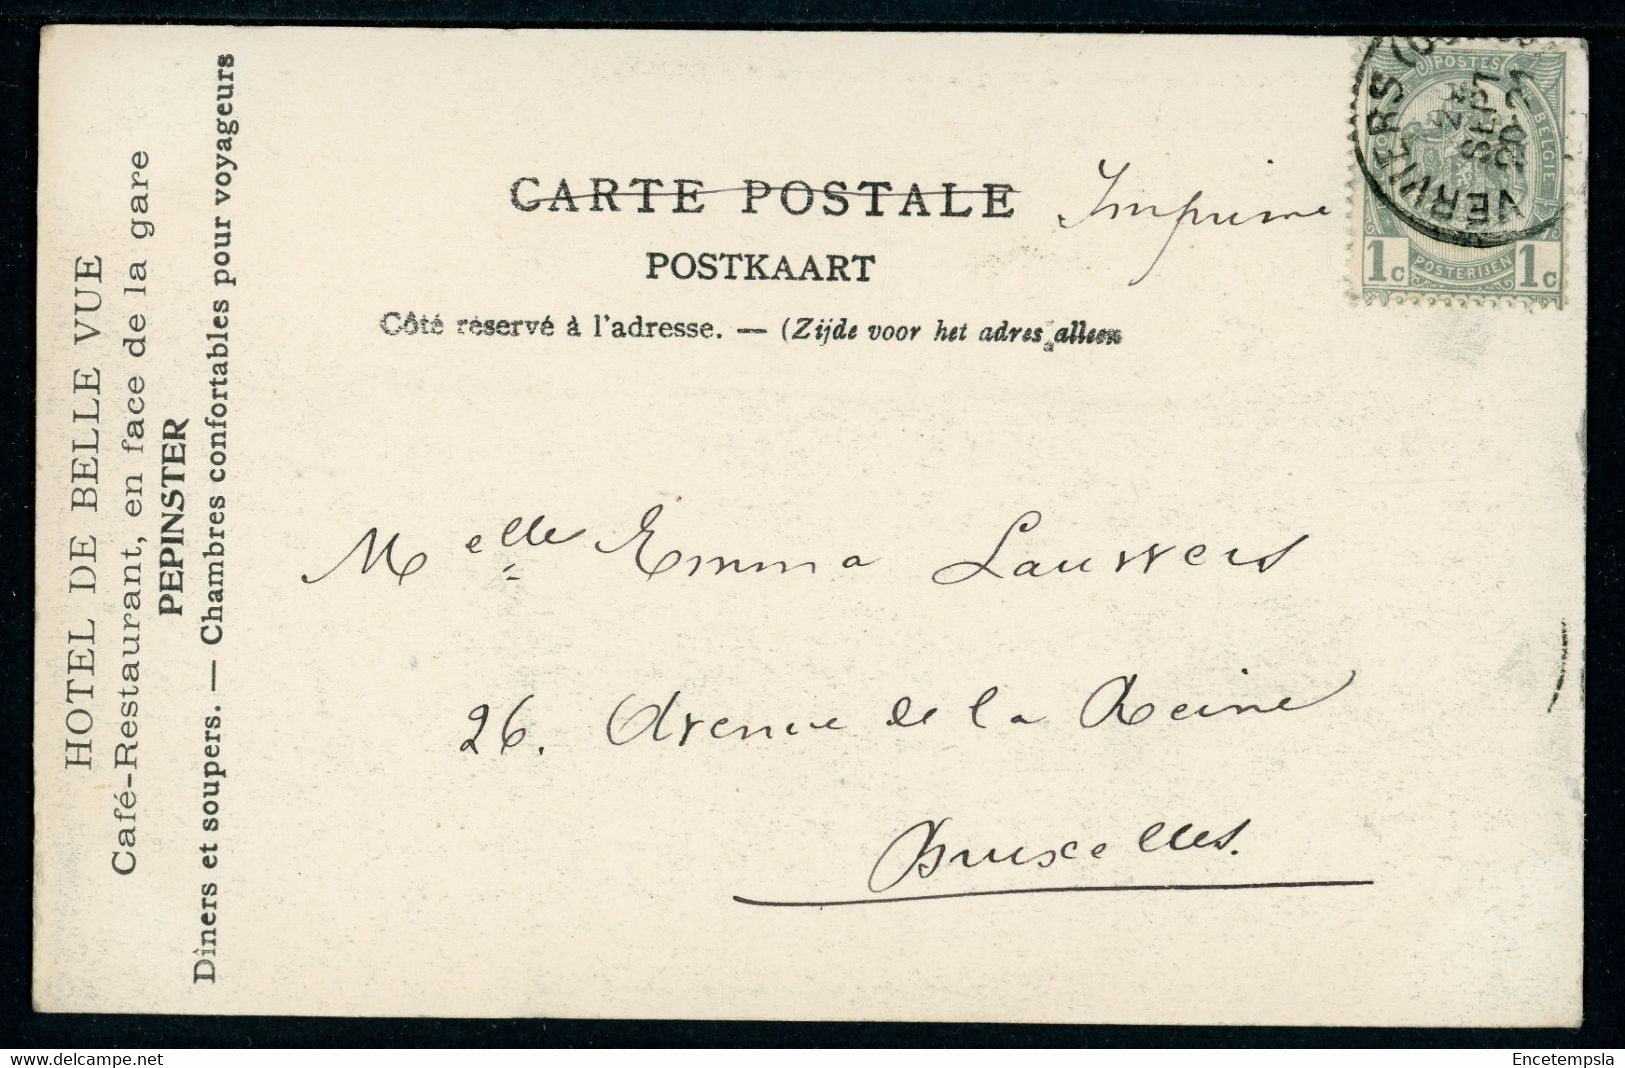 HOTEL DE BELLE VUE
Café-Restaurant, en face de la gare
PEPINSTER
Dîners et soupers. — Chambres confortables pour voyageurs
CARTE POSTALE
Imprimé
POSTKAART
Côté réservé à l'adresse. — (Zijde voor het adres alleen
POSTES
BELGIQUE
BELGIE
1c
POSTERIJEN
1c
VERVIERS
SEPT
Melle Emma Lauwers
26. Avenue de la Reine
Bruxelles.
delcampe.net
Encetempsla